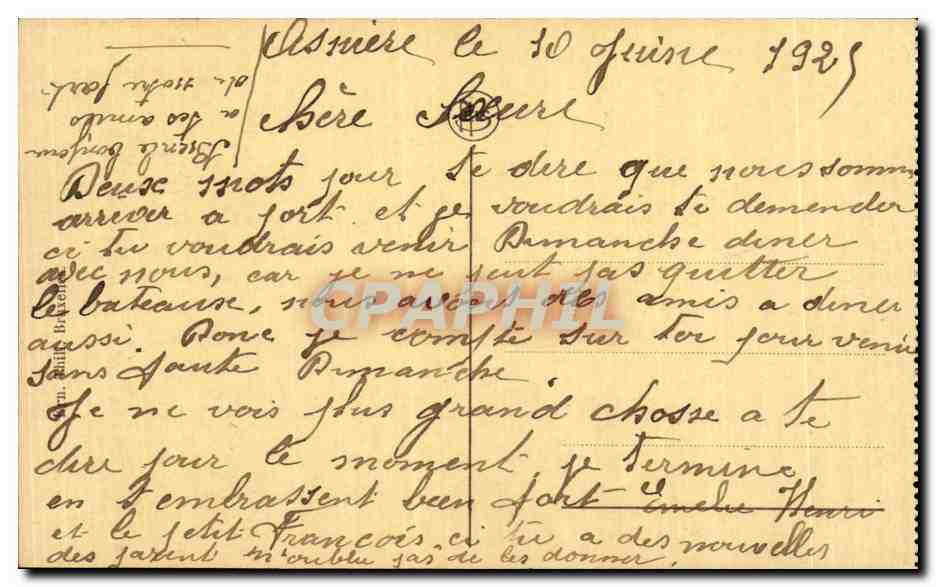 Asnière le 10 Juine 1925
Chère Sœure
Deuse mots pour te dire que nous somm
arriver a port et je voudrais te demender
ci tu voudrais venir Dimanche diner
avec nous, car je ne peut pas quitter
le bateause, nous avons des amis a diner
aussi. Donc je compte sur toi pour venir
sans faute Dimanche.
Je ne vois plus grand chosse a te
dire pour le moment, je termine
en t'embrassent bien fort Emelie Henri
et le petit François, ci tu a des nouvelles
des parent n'oublie pas de les donner.
Bien le bonjour
a tes amis
de notre part.
CPAPHIL
Ern. Thill, Bruxelles